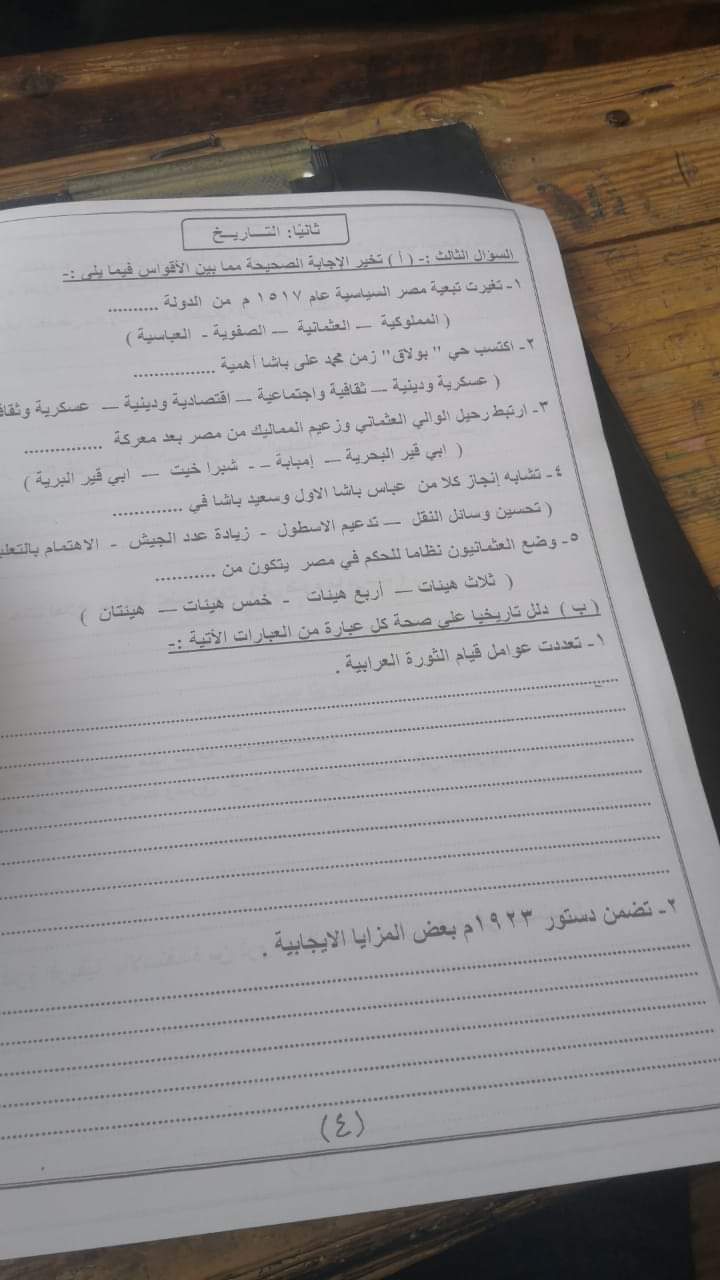 ثانيًا: التـــاريــخ
السؤال الثالث :- ( أ ) تخير الإجابة الصحيحة مما بين الأقواس فيما يلى :-
١- تغيرت تبعية مصر السياسية عام ١٥١٧ م من الدولة ..........
( المملوكية – العثمانية – الصفوية - العباسية )
٢- اكتسب حي " بولاق" زمن محمد على باشا أهمية ................
( عسكرية ودينية – ثقافية واجتماعية – اقتصادية ودينية – عسكرية
٣- ارتبط رحيل الوالي العثماني وزعيم المماليك من مصر بعد معركة ...............
( ابي قير البحرية – إمبابة – - شبرا خيت – ابي قير البرية )
٤- تشابه إنجاز كلا من عباس باشا الاول وسعيد باشا في .............
( تحسين وسائل النقل – تدعيم الاسطول - زيادة عدد الجيش - الاهتمام
٥- وضع العثمانيون نظاما للحكم في مصر يتكون من ...........
( ثلاث هيئات – أربع هيئات - خمس هيئات – هيئتان )
( ب ) دلل تاريخيا على صحة كل عبارة من العبارات الأتية :-
١- تعددت عوامل قيام الثورة العرابية .
٢- تضمن دستور ١٩٢٣م بعض المزايا الايجابية .
(٤)